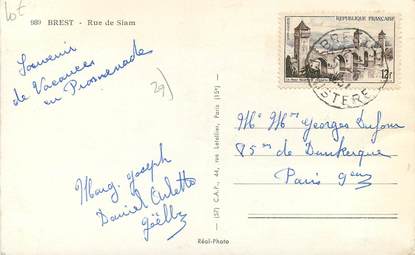 lot
989 BREST - Rue de Siam
Souvenir
de Vacances
en Promenade
29
Marg. Joseph
Daniel Arlette
Joëlle
(57) C.A.P., 44, rue Letellier, Paris (15e)
Réal-Photo
REPUBLIQUE FRANÇAISE
12F
BREST
FINISTERE
Mr Mme Georges Dufour
85 rue de Dunkerque
Paris 9em